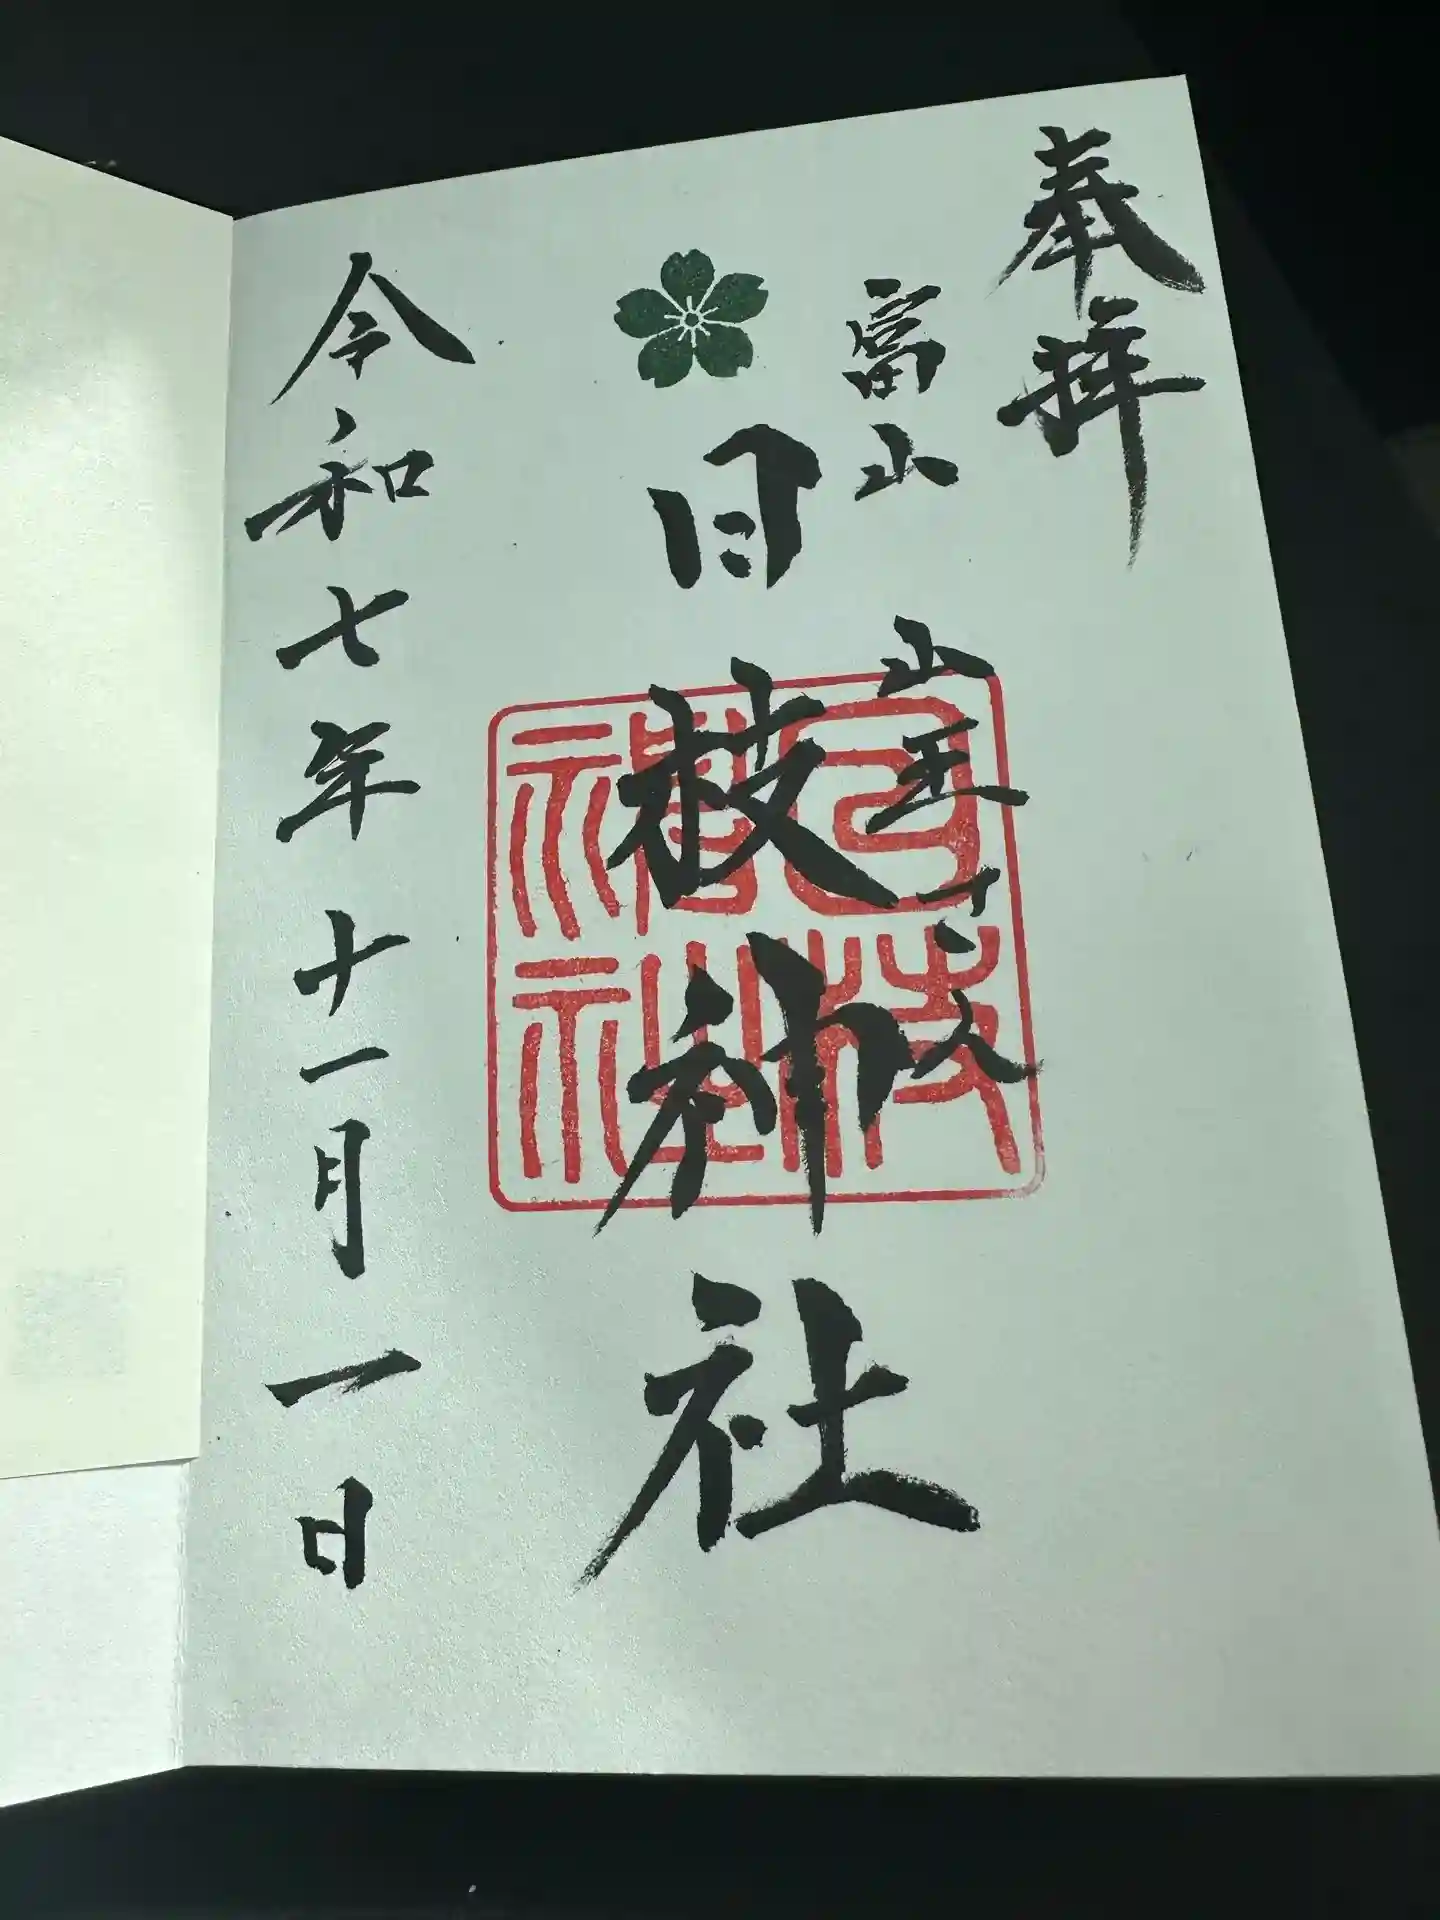 奉拝
富山 山王さん
日枝神社
日枝神社
令和七年十一月一日